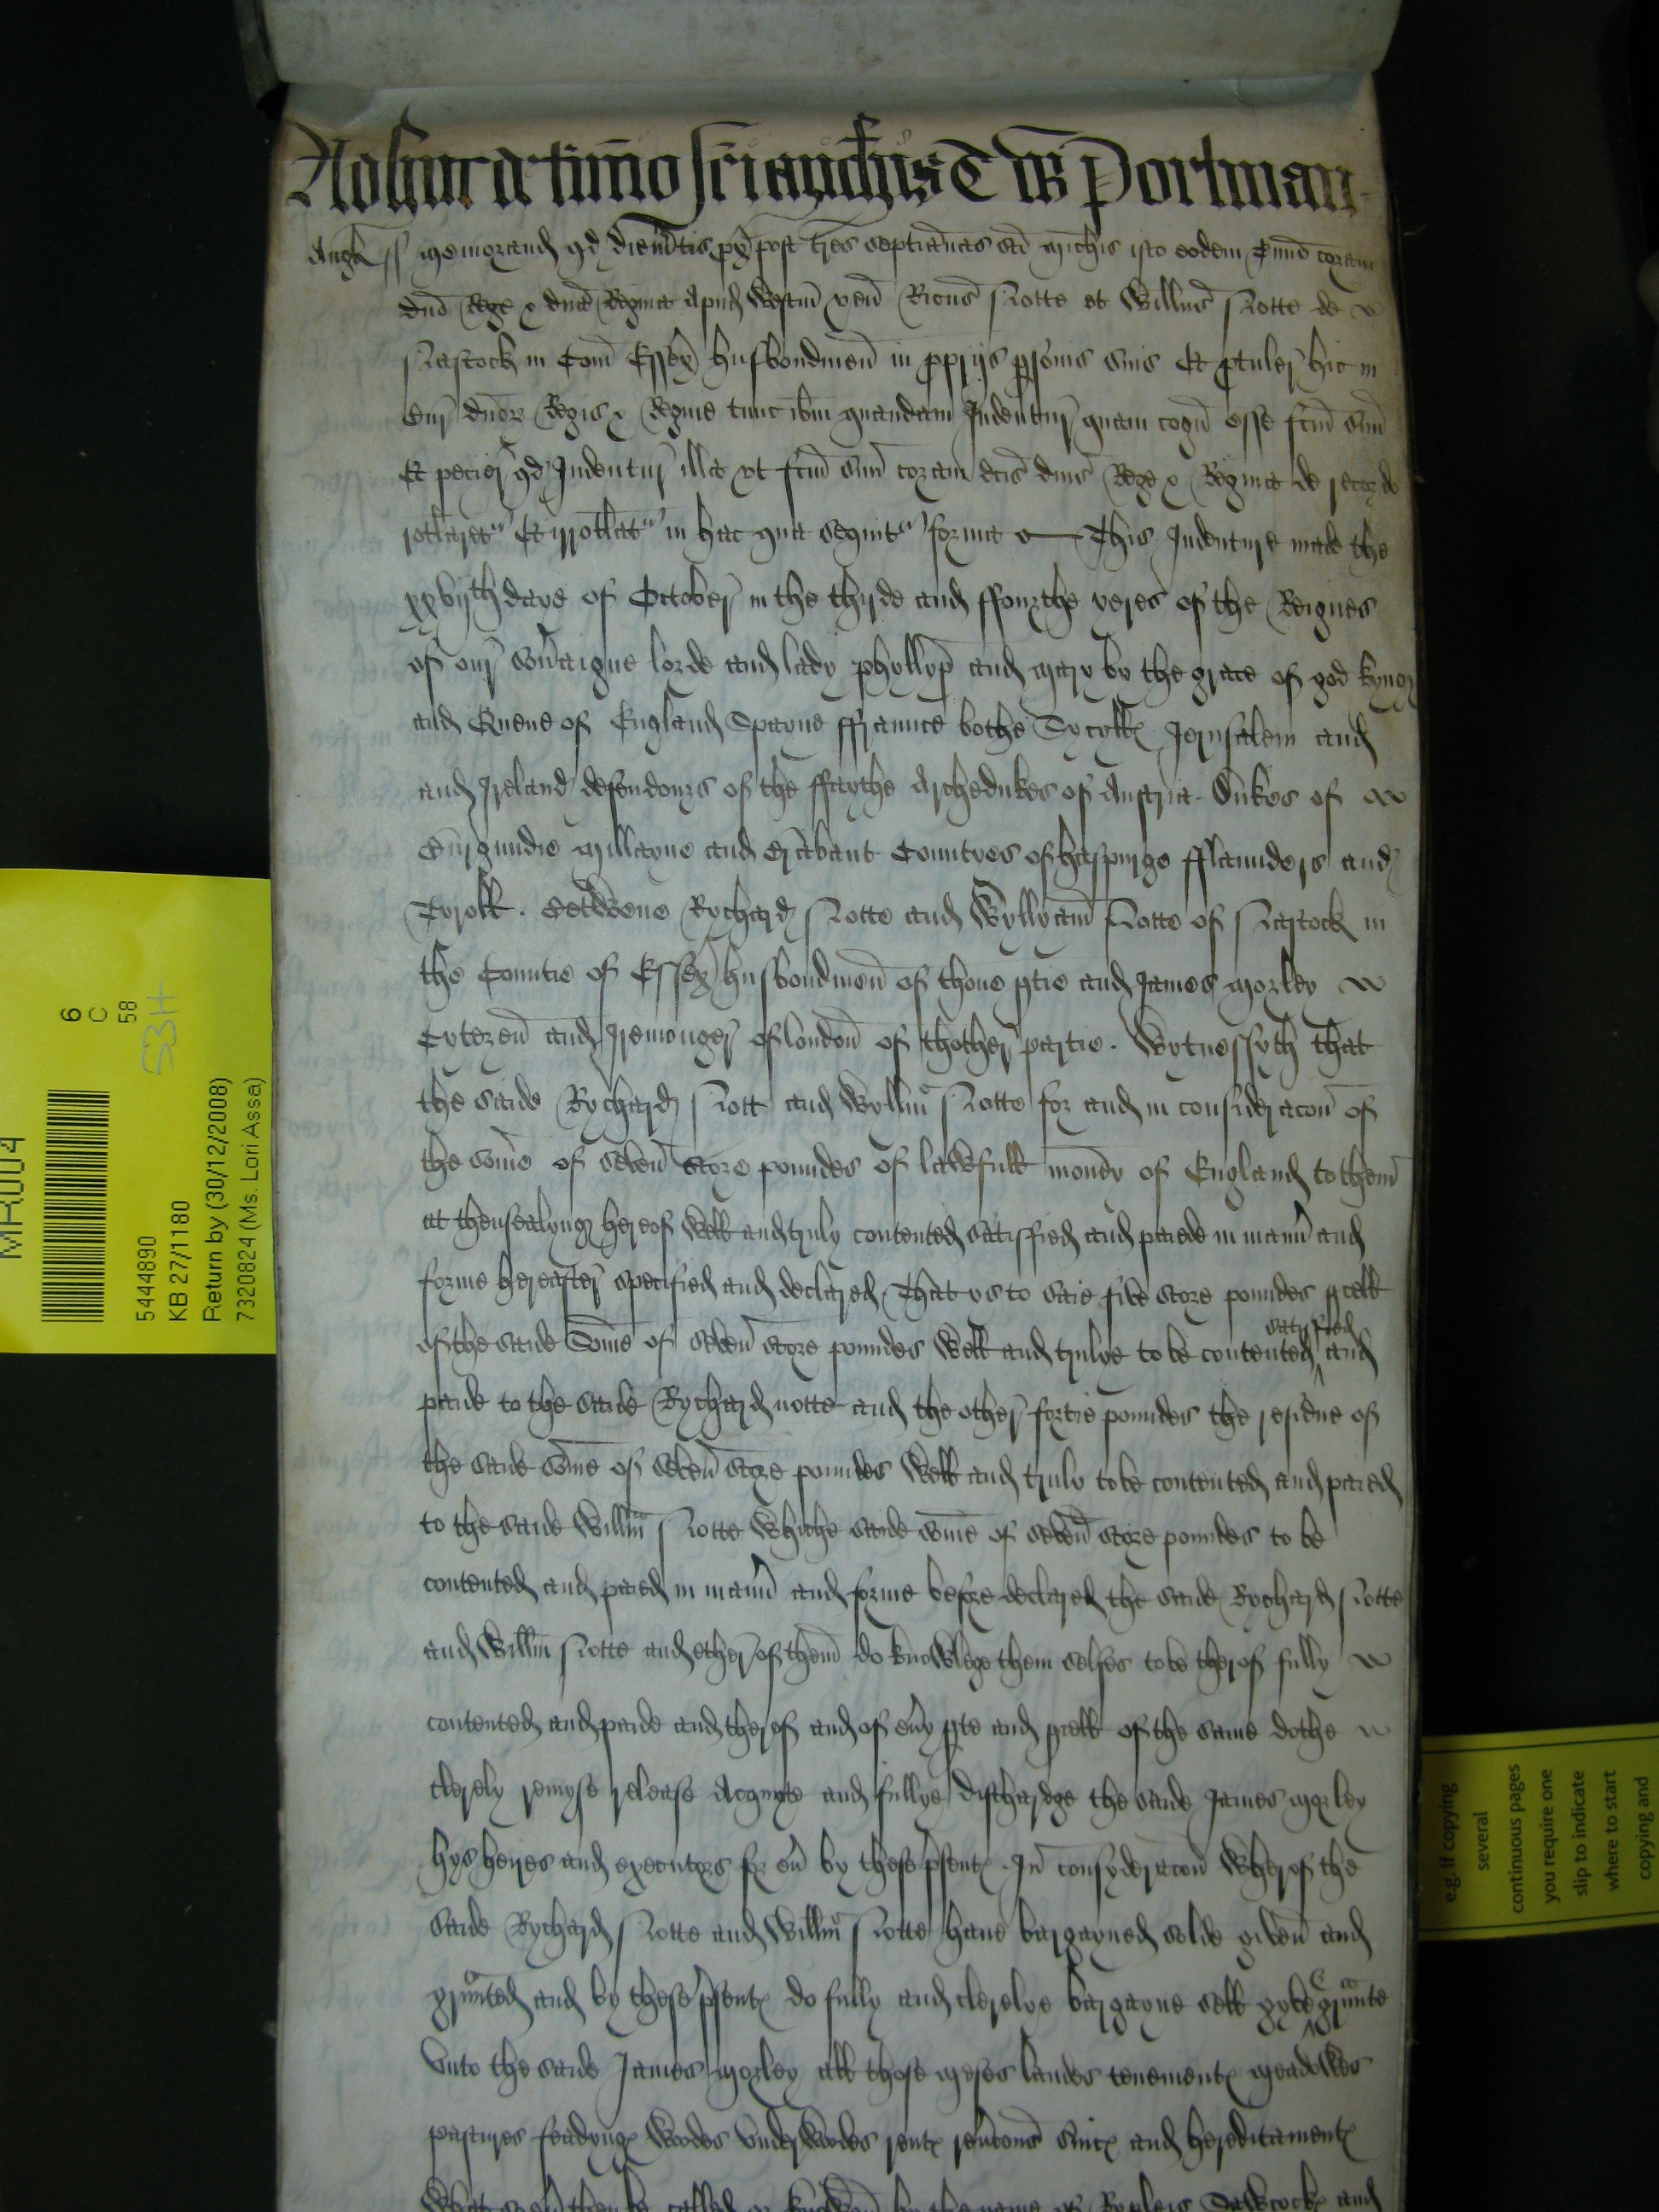 Portman
Angl ss Memorand qd die veneris px post tres septianas sci Michis isto eodem Tmino coram
dno Rege & dna Regina apud Westm ven Ricus Notte et Willms Notte de
Nastock in Com Essex husbondmen in pprijs psonis suis Et ptuler hic in
Cur dnor Regis & Regine tunc ibm quandam Indentur quam cogn esse fcm suu
Et petier qd Indentur illa vt fcm suu coram dcis dnis Rege & Regina de recordo
irrotlaret Et irrotlat in hac que sequit forma This Indenture made the
xxvijth daye of October in the thyrde and ffourthe yeres of the Reignes
of our Soveraigne lorde and lady phyllyp and Mary by the grace of god kyng
and Quene of England Spayne ffraunce bothe Sycyll Jerusalem and
and Ireland defendours of the ffaythe Archedukes of Austria Dukes of
Burgundie Millayne and Brabant Countyes of haspurge fflaunders and
Tyroll. Betwene Rychard Notte and Wyllyam Notte of Nastock in
the Countie of Essex husbondmen of thone ptie and James Morley
Cytezen and Iremonger of london of thother partie. Wytnessyth that
the saide Rychard Nott and Wyllm Notte for and in consideracon of
the some of seven score poundes of lawfull money of England to them
at thensealyng hereof well and truly contented satisfied and paide in mann and
forme hereafter specified and declared That ys to saie five score poundes pcell
of the saide Some of seven score poundes well and trulye to be contented satisfied and
paide to the saide Rychard notte and the other fortie poundes the residue of
the saide some of seven score poundes well and truly to be contented and paied
to the saide Willm Notte Whiche saide some of seven score poundes to be
contented and paied in mann and forme before declared the saide Rychard Notte
and Willm Notte and ether of them do knowlege them selfes to be therof fully
contented and paide and therof and of evy pte and pcell of the same dothe
clerely remyse release Acquyte and fullye discharge the saide James Morley
hys heires and executors for ev by these psents. In consyderacon Wherof the
saide Rychard Notte and Willm Notte have bargayned solde given and
graunted and by these psents do fully and clerelye bargayne sell gyve & graunte
Unto the saide James Morley all those meses landes tenements meadowes
pastures feadyngs Woodes Underwoodes rents revcons suics and hereditaments
called or knowen by the name of and
MR004
6
C
58
5444890
KB 27/1180
Return by (30/12/2008)
7320824 (Ms. Lori Assa)
e.g. If copying
several
continuous pages
you require one
slip to indicate
where to start
copying and